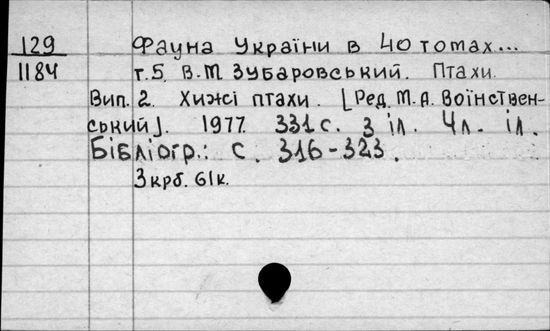 129 Фауна України в 40 томах...
1184 т.5. В.М. Зубаровський. Птахи.
Вип. 2. Хижі птахи. [Ред. М.А. Воїнствен-
ський]. 1977. 331 с. з іл. 4 л. іл.
Бібліогр.: с. 316-323.
3 крб. 61к.